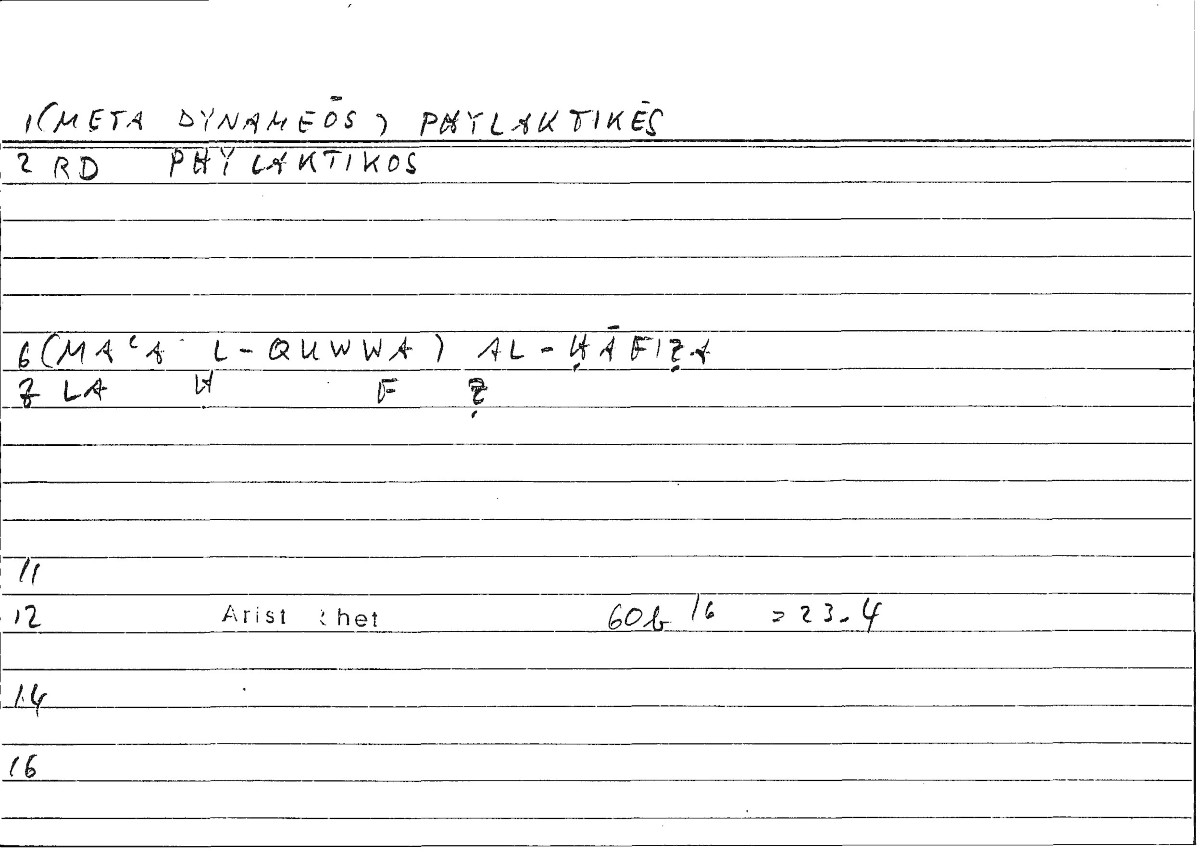 1 (META DYNAMEŌS) PHYLAKTIKĒS
2 RD PHYLAKTIKOS
6 (MAʿA L-QUWWA) AL-ḤĀFIẒA
7 LA Ḥ F Ẓ
11
12 Arist Rhet 60b 16 = 23.4
14
16